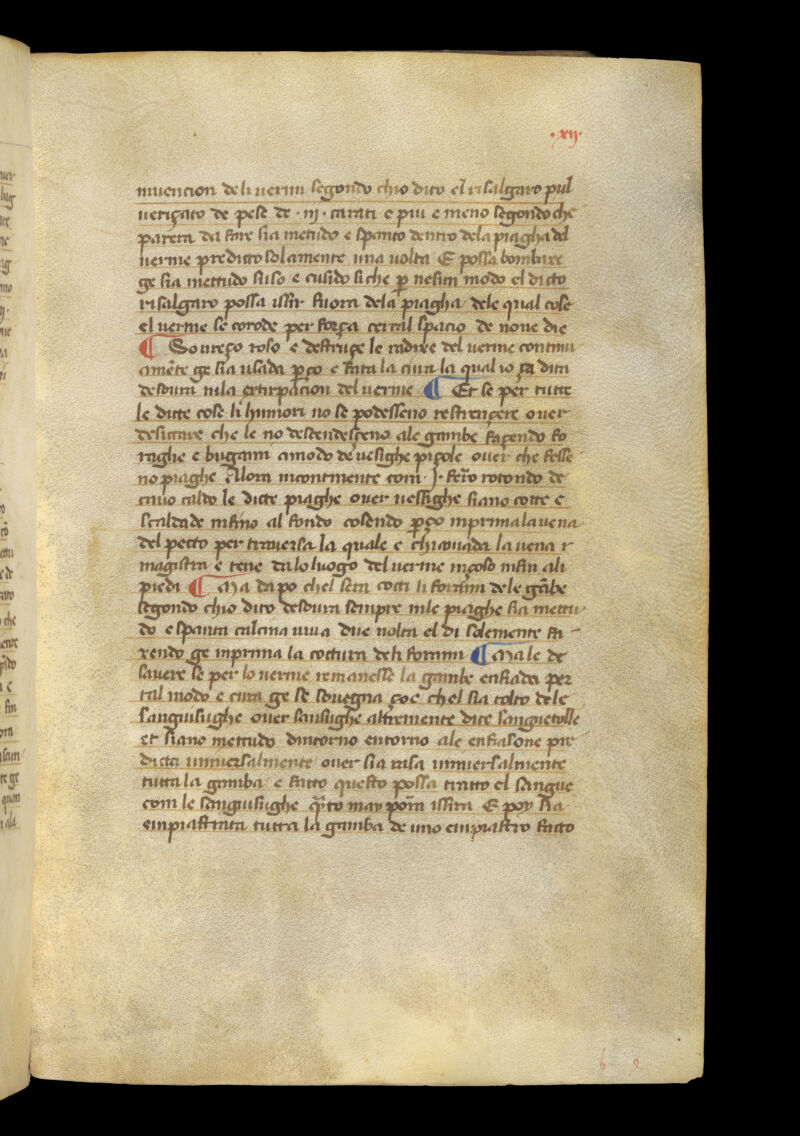 ·xij·
inuencion deli uermi segondo chio dito el risalgaro pul
uerizato de pese de · iij · carati e piu e meno segondo che
parera da fare sia metudo e spanto dentro dela piagha del
uerme predicto solamente una uolta E possa bombaxe
ge sia mettudo suso e cusido si che p̱ nesun modo el dicto
risalgaro possa issir fuora dela piagha dele qual cose
el uerme se corode per força cercal spacio de noue die
¶ Soureço roso e destruçe le radixe del uerme continu
amẽte ge sia usada p̱ço e fata la cura la qual io ça dita
desoura nila extirpacion del uerme ¶ Et se per tutte
le ditte cose li humori no se podesseno restrençere ouer
desiccare che le no descendesçeno ale gambe façendo fo
raghe e buganẓ amodo de uesighe piçole ouer che fesse
no piaghe Alora incontinente com · j · ferro rotondo de
cauo caldo le dicte piaghe ouer uessighe siano cotte e
scaldade infino al fondo cosendo p̱ço inprima la uena
del pecto per trauersa la quale e chiamada la uena r
magistra e tene da lo luogo del uerme inçoso infin ali
piedi ¶ Ma da po chel sera cocti li forami dele gãbe
segondo chio dito desoura sempre inle piaghe sia mettu
do e spanta calcina uiua due uolta el di solemente fa
xendo ge inprima la coctura deli forami ¶ Ma le de
sauere se per lo uerme remanesse la gambe enfiada per
tal modo e cura ge se souegna çoe chel sia tolto dele
sanguisughe ouer sansughe altremente dite sanguetolle
et siano mettudo dintorno entorno ale enfiasone pre
dicta uniuersalmente ouer sia rasa uniuersalmente
tutta la gamba e fatto questo possa tratto el sangue
com le sanguisughe q̃to may porã issira E poy sia
empiastrata tutta la gamba de uno empiastro facto
6 9